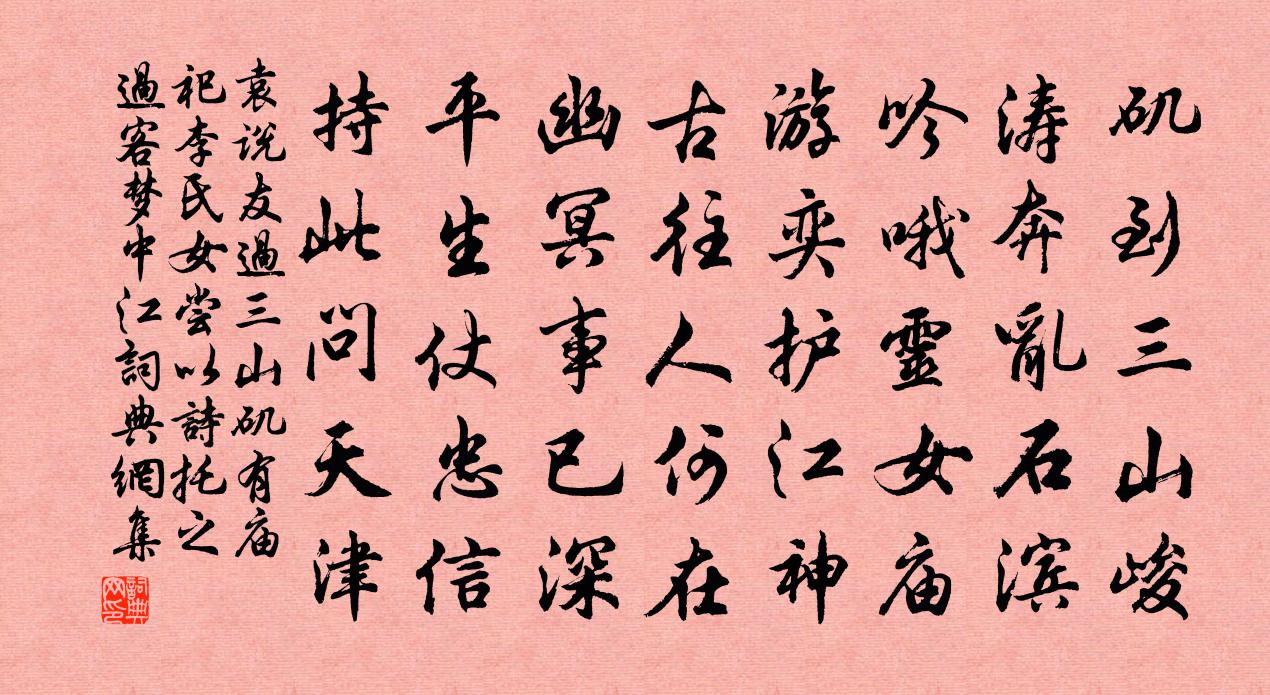 矶到三山峻
涛奔亂石滨
吟哦靈女庙
游奕护江神
古往人何在
幽冥事已深
平生仗忠信
持此问天津
袁说友過三山矶有庙
祀李氏女尝以詩托之
過客梦中江詞典網集
詞典
网印